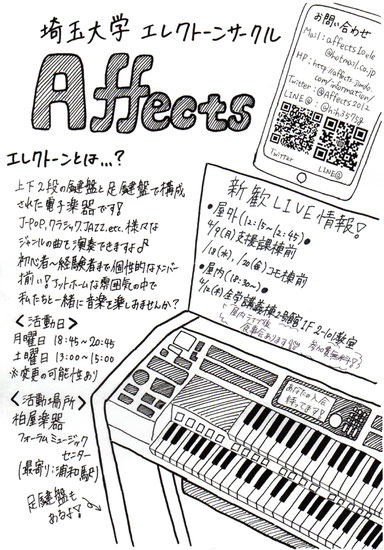 埼玉大学 エレクトーンサークル
Affects
エレクトーンとは...?
上下2段の鍵盤と足鍵盤で構成
された電子楽器です!
J-POP、クラシック、JAZZ、etc. 様々な
ジャンルの曲を演奏できますよ♪
初心者〜経験者まで個性的なメンバー
揃い! アットホームな雰囲気の中で
私たちと一緒に音楽を楽しみませんか?
<活動日>
月曜日 18:45〜20:45
土曜日 13:00〜15:00
※変更の可能性あり
<活動場所>
柏屋楽器
フォーラムミュージック
センター
(最寄り:浦和駅)
足鍵盤も
あるよ!
お問い合わせ
Mail: affects10ele
@hotmail.co.jp
HP: http://affects.jimdo.
com/information/
Twitter: @Affects2012
LINE@:
Twitter
LINE@
新歓LIVE情報!
●屋外(12:15〜12:45)
4/9(月)支援課棟前
/18(水)、/20(金)コモ棟前
●屋内(18:30〜)
4/12(木)全学講義棟2号館1F 2-101教室
屋内ライブ後
食事会あります!
参加費無料!
あなたの入会
待ってます!